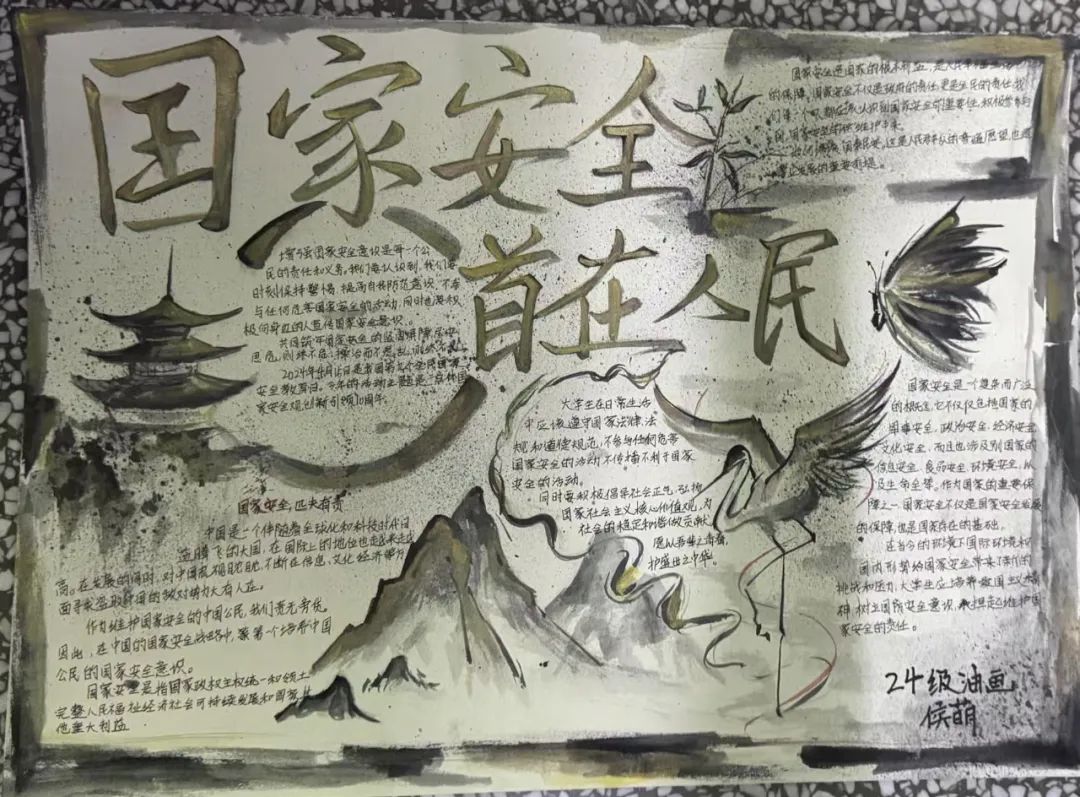 国家安全
首在人民
国家安全是国家的根本利益，是人民
的保障。国家安全不仅是政府的责任，更是全民的责任，我
们每一个人都应该认识到国家安全的重要性，积极参与
到国家安全的维护中来
国泰民安，这是人民群众的普遍愿望，也是
的重要前提。
增强国家安全意识是每一个公
民的责任和义务。我们要认识到，我们要
时刻保持警惕，提高自我防范意识，不参
与任何危害国家安全的活动，同时也要积
极向身边的人宣传国家安全意识。
共同筑牢国家安全的坚固屏障，居安
思危，则终不危；操治而不忘乱，
2024年4月15日是我国第九个全民国家
安全教育日，今年的活动主题是“总体国
家安全观创新引领10周年。
大学生在日常生活
中应该遵守国家法律、法
规和道德规范，不参与任何危害
国家安全的活动，不传播不利于国家
安全的活动。
同时要积极倡导社会正气，弘扬
国家社会主义核心价值观，为
社会的稳定和谐做贡献。
愿以吾辈之青春，
护盛世之中华。
国家安全，匹夫有责
中国是一个伴随着全球化和科技时代日
益腾飞的大国，在国际上的地位也越来越
高。在发展的同时，对中国虎视眈眈，不断在信息、文化经济等方
面寻求盗取中国的敌对势力大有人在。
作为维护国家安全的中国公民，我们责无旁贷。
因此，在中国的国家安全战略中，要第一个培养中国
公民的国家安全意识。
国家安全是指国家政权主权统一和领土
完整人民福祉经济社会可持续发展和国家其
他重大利益
国家安全是一个复杂而广泛
的概念，它不仅仅包括国家的
军事安全，政治安全，经济安全
文化安全，而且也涉及到国家的
信息安全，食品安全，环境安全，
生命全等。作为国家的重要保
障之一，国家安全不仅是国家安全发展
的保障，也是国家存在的基础。
在当今的环境下国际环境和
国内形势给国家安全带来了新的
挑战和压力，大学生应培养爱国主义精
神，树立国防安全意识，担起维护国
家安全的责任。
24级油画
侯萌